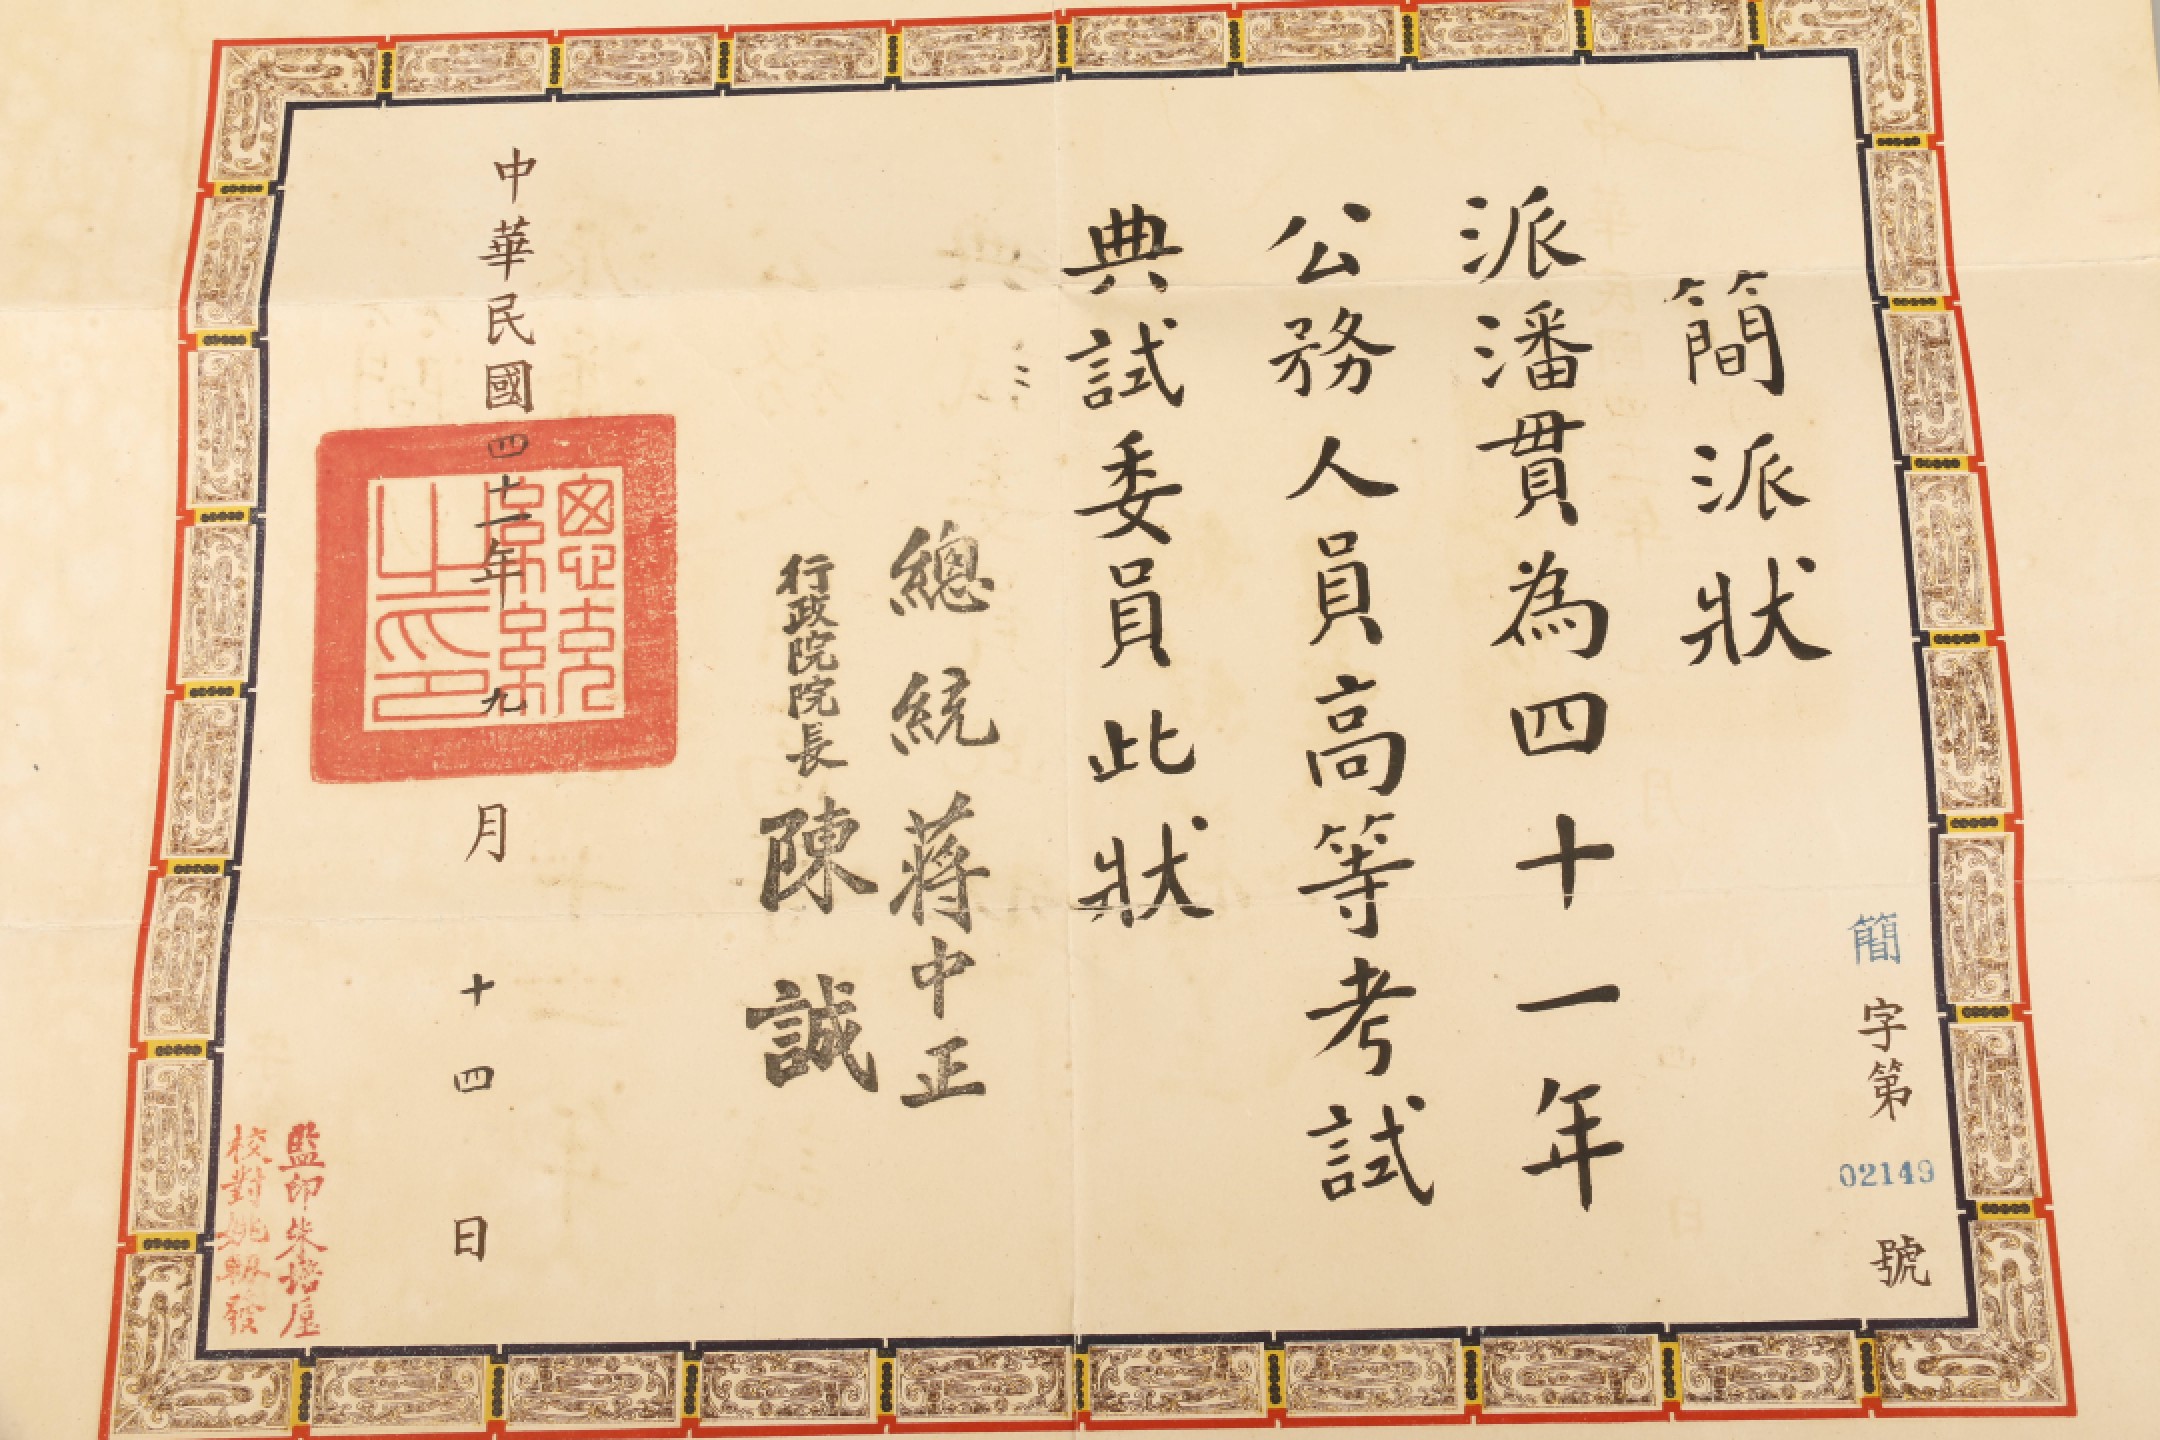 簡字第02149號
簡派狀
派潘貫為四十一年
公務人員高等考試
典試委員此狀
總統 蔣中正
行政院院長 陳誠
中華民國四十一年九月十四日
總統之印
監印朱培垕
校對姚駬發